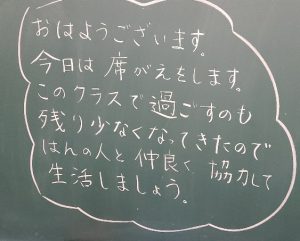 おはようございます。
今日は席がえをします。
このクラスで過ごすのも
残り少なくなってきたので
はんの人と仲良く協力して
生活しましょう。